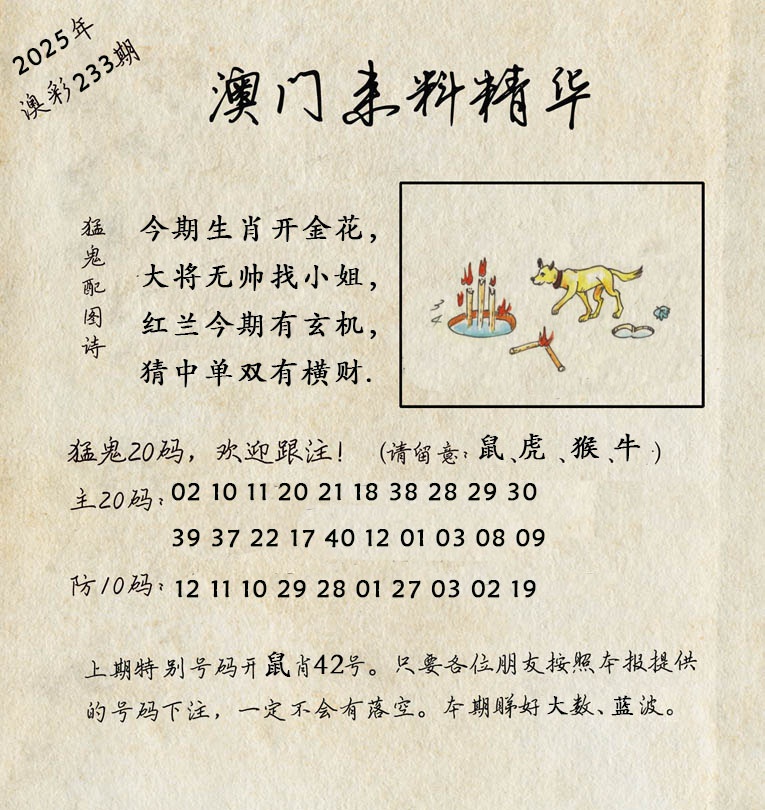 2025年
澳彩233期
澳门来料精华
猛鬼配图诗
今期生肖开金花，
大将无帅找小姐，
红兰今期有玄机，
猜中单双有横财.
猛鬼20码，欢迎跟注！（请留意：鼠、虎、猴、牛）
主20码：02 10 11 20 21 18 38 28 29 30
39 37 22 17 40 12 01 03 08 09
防10码：12 11 10 29 28 01 27 03 02 19
上期特别号码开鼠肖42号。只要各位朋友按照本报提供
的号码下注，一定不会有落空。本期睇好大数、蓝波。